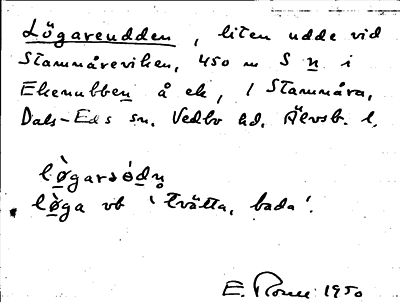 Lögareudden, liten udde vid
Stammåreviken, 450 m S n i
Ekenubben å ek, 1 Stammåra,
Dals-Eds sn. Vedbo hd. Älvsb. l.
lø̀garsódn̥
lø̀ga vb 'tvätta, bada'.
E. 1950